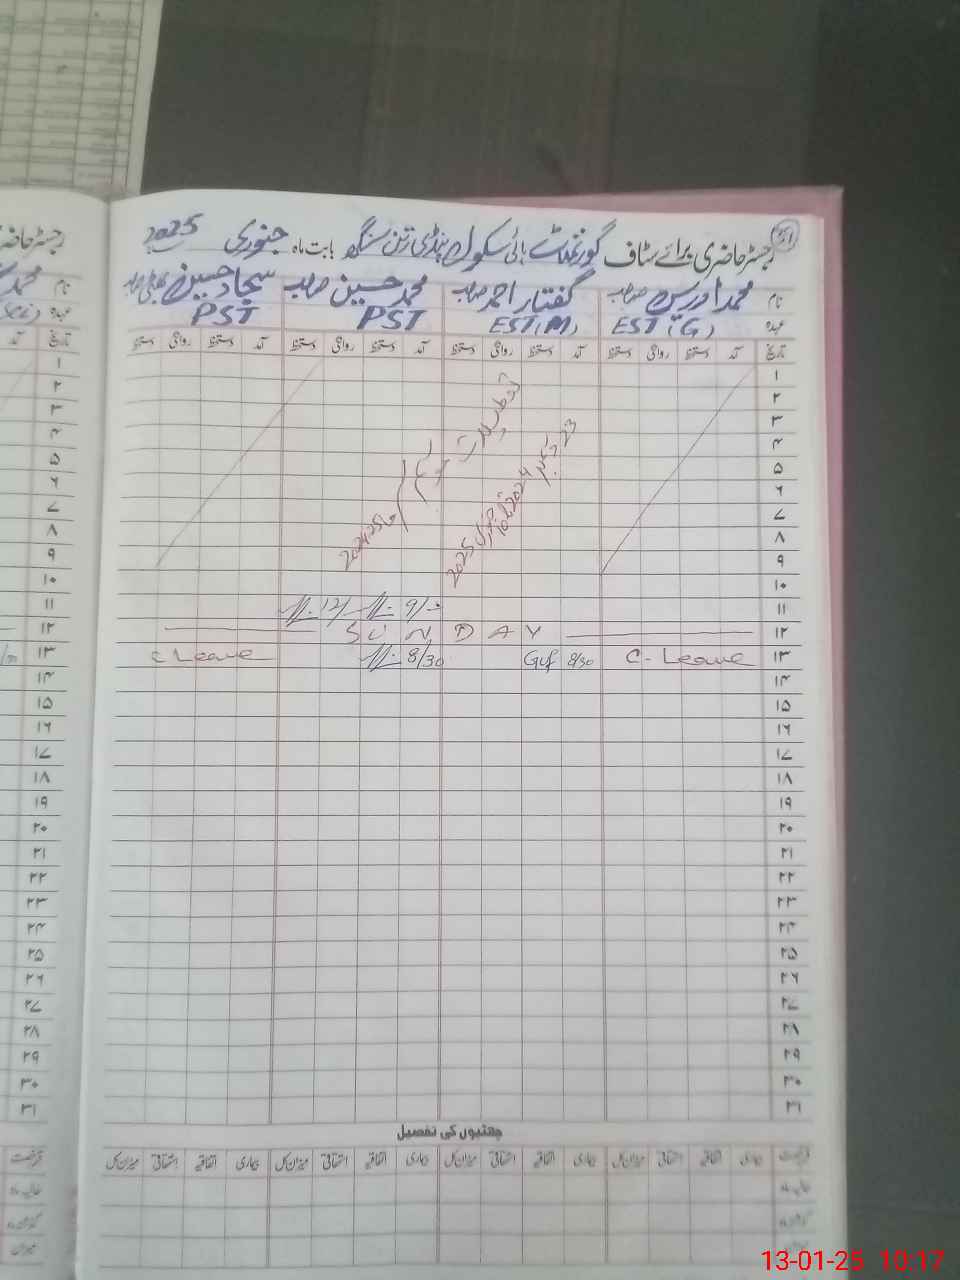 رجسٹر حاضری برائے سٹاف گورنمنٹ ہائی سکول پنڈی رتن سنگھ بابت ماہ جنوری 2025
نام محمد ادریس صاحب گفتار احمد صاحب محمد حسین صاحب سجاد حسین
عہدہ EST (G) EST (M) PST PST
تاریخ آمد دستخط روانگی دستخط آمد دستخط روانگی دستخط آمد دستخط روانگی دستخط آمد دستخط روانگی دستخط
۱
۲
۳
۴
۵
۶
۷
۸
۹
۱۰
تعطیلات موسم سرما 2024-25
23 دسمبر 2024 تا 10 جنوری 2025
۱۱ 9/- 12/-
۱۲ SUNDAY
۱۳ C-Leave 8/30 Guf 8/30 C Leave
۱۴
۱۵
۱۶
۱۷
۱۸
۱۹
۲۰
۲۱
۲۲
۲۳
۲۴
۲۵
۲۶
۲۷
۲۸
۲۹
۳۰
۳۱
چھٹیوں کی تفصیل
رخصت بیماری اتفاقیہ استحقاقی میزان کل بیماری اتفاقیہ استحقاقی میزان کل بیماری اتفاقیہ استحقاقی میزان کل بیماری اتفاقیہ استحقاقی میزان کل
حالیہ ماہ
گذشتہ ماہ
میزان
13-01-25 10:17